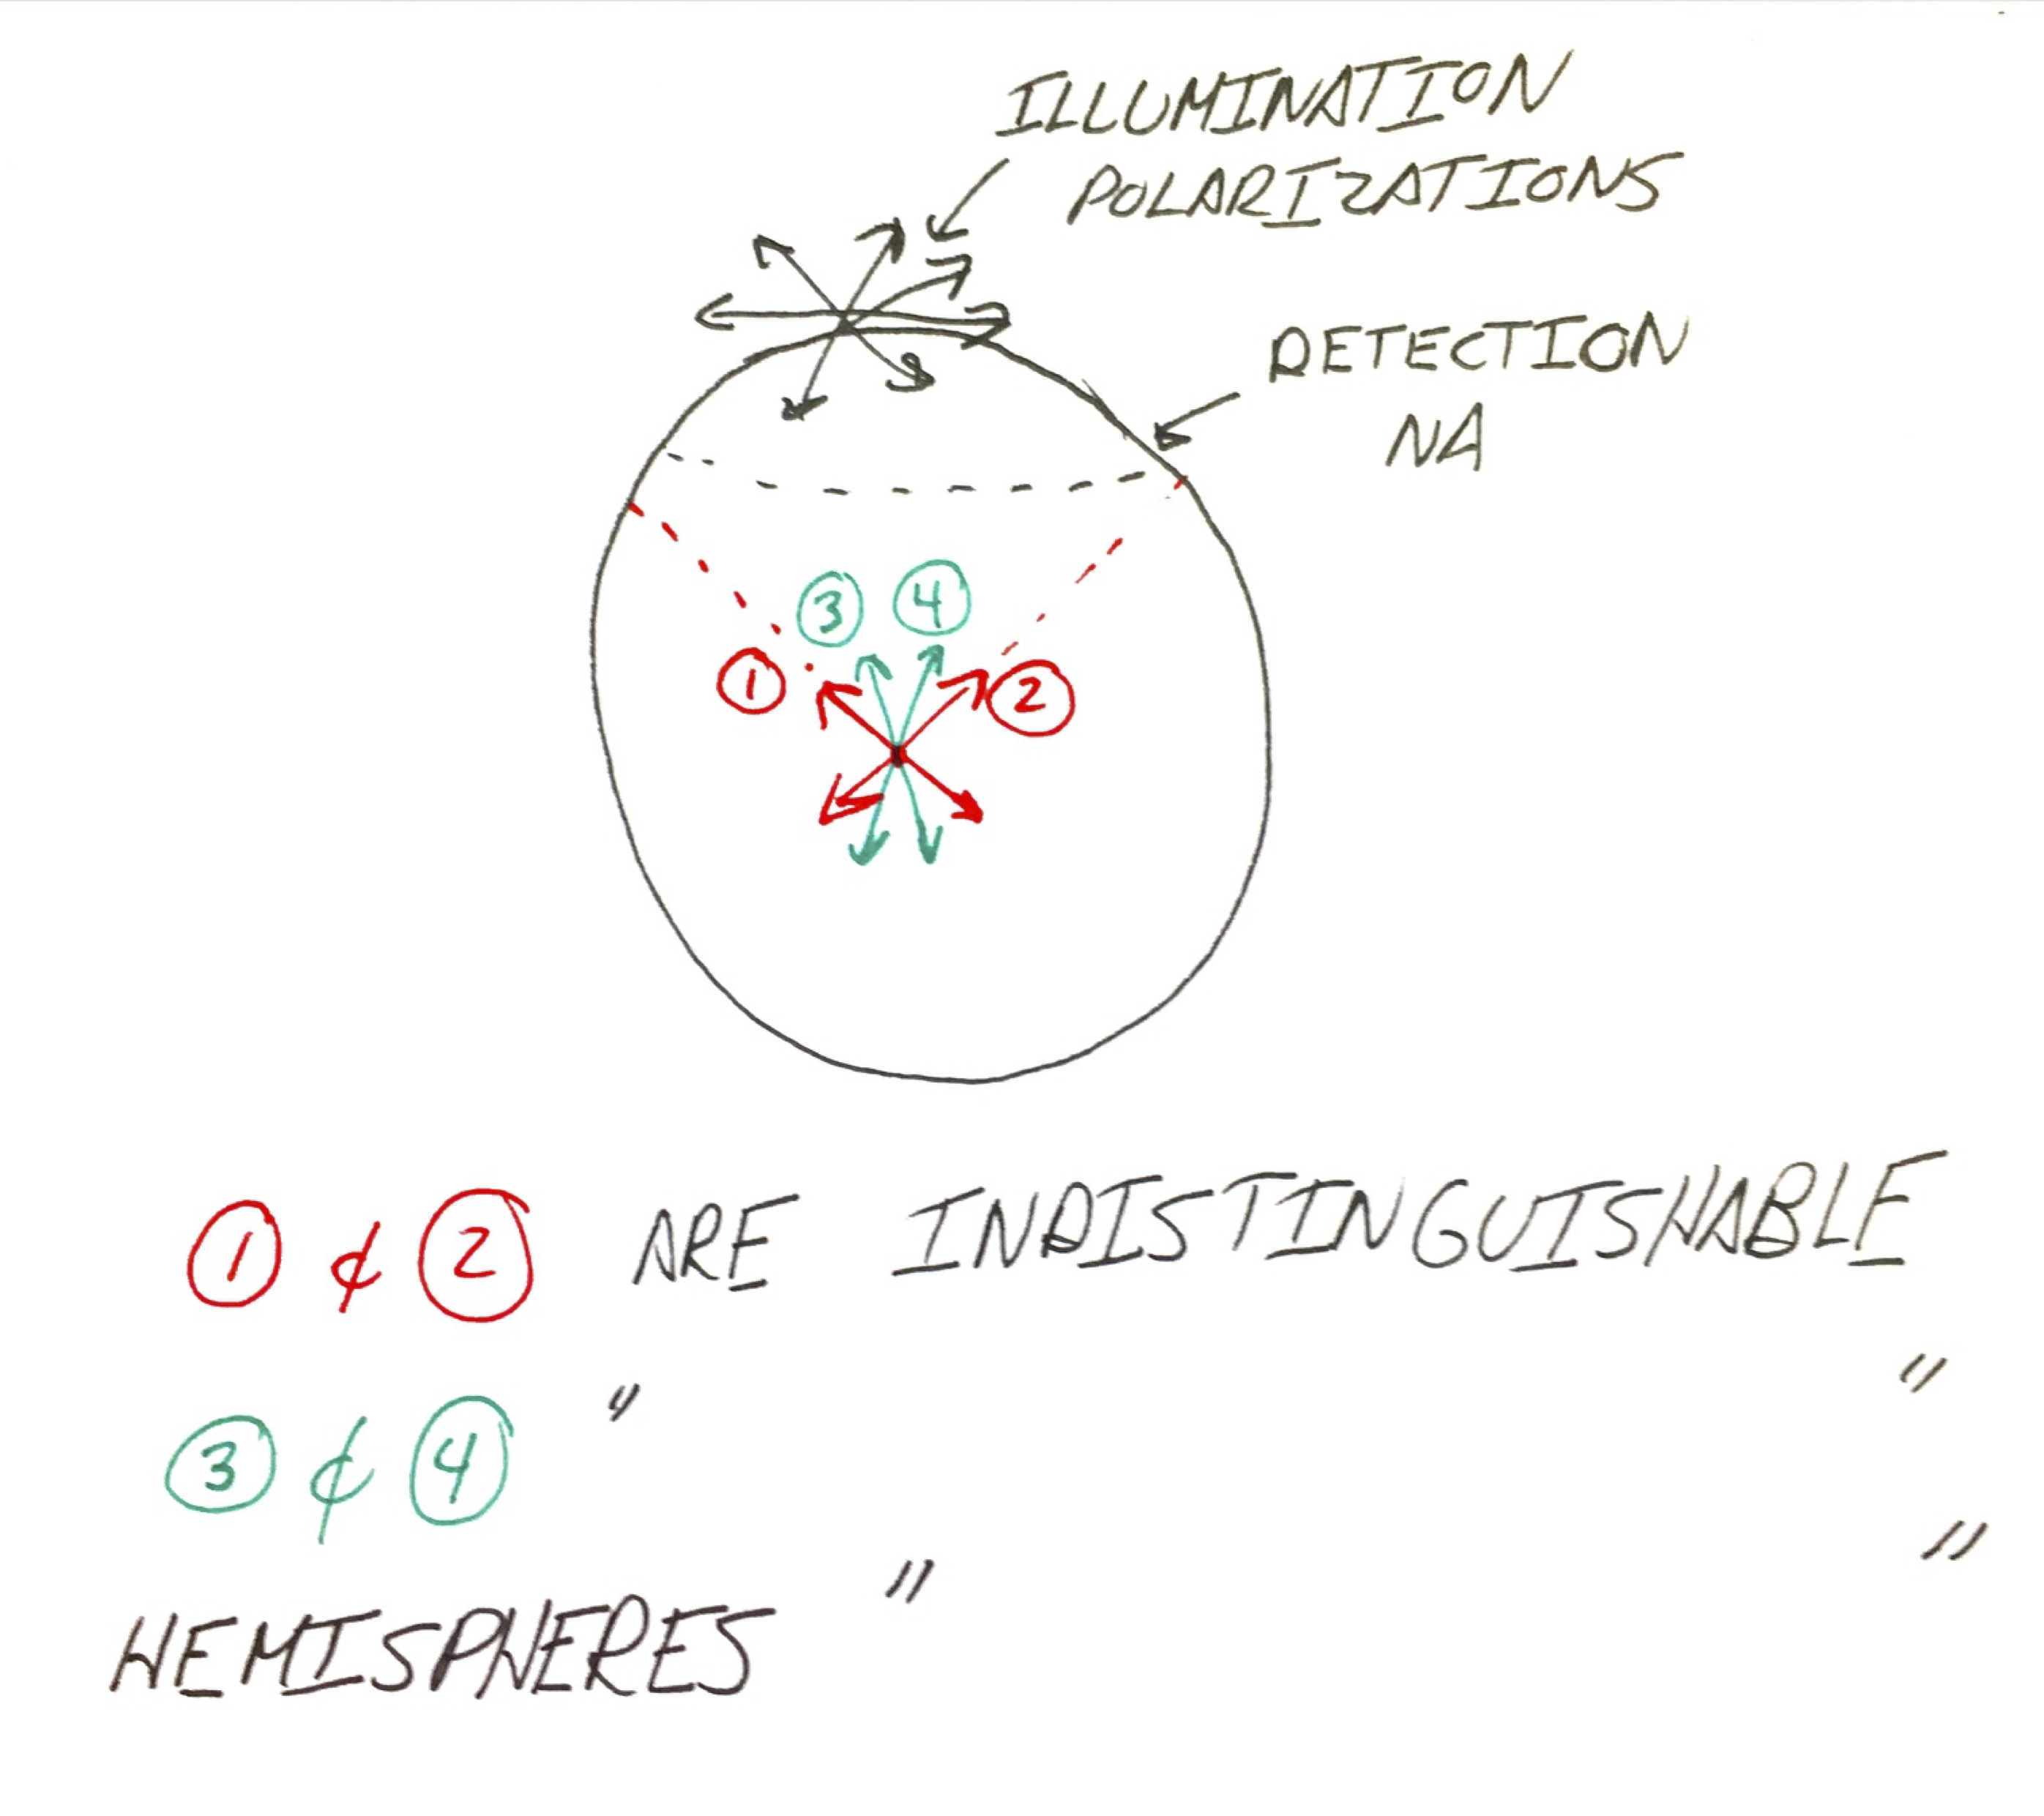 ILLUMINATION
POLARIZATIONS
DETECTION
NA
3 4
1 2
1 & 2 ARE INDISTINGUISHABLE
3 & 4 " "
HEMISPHERES " "